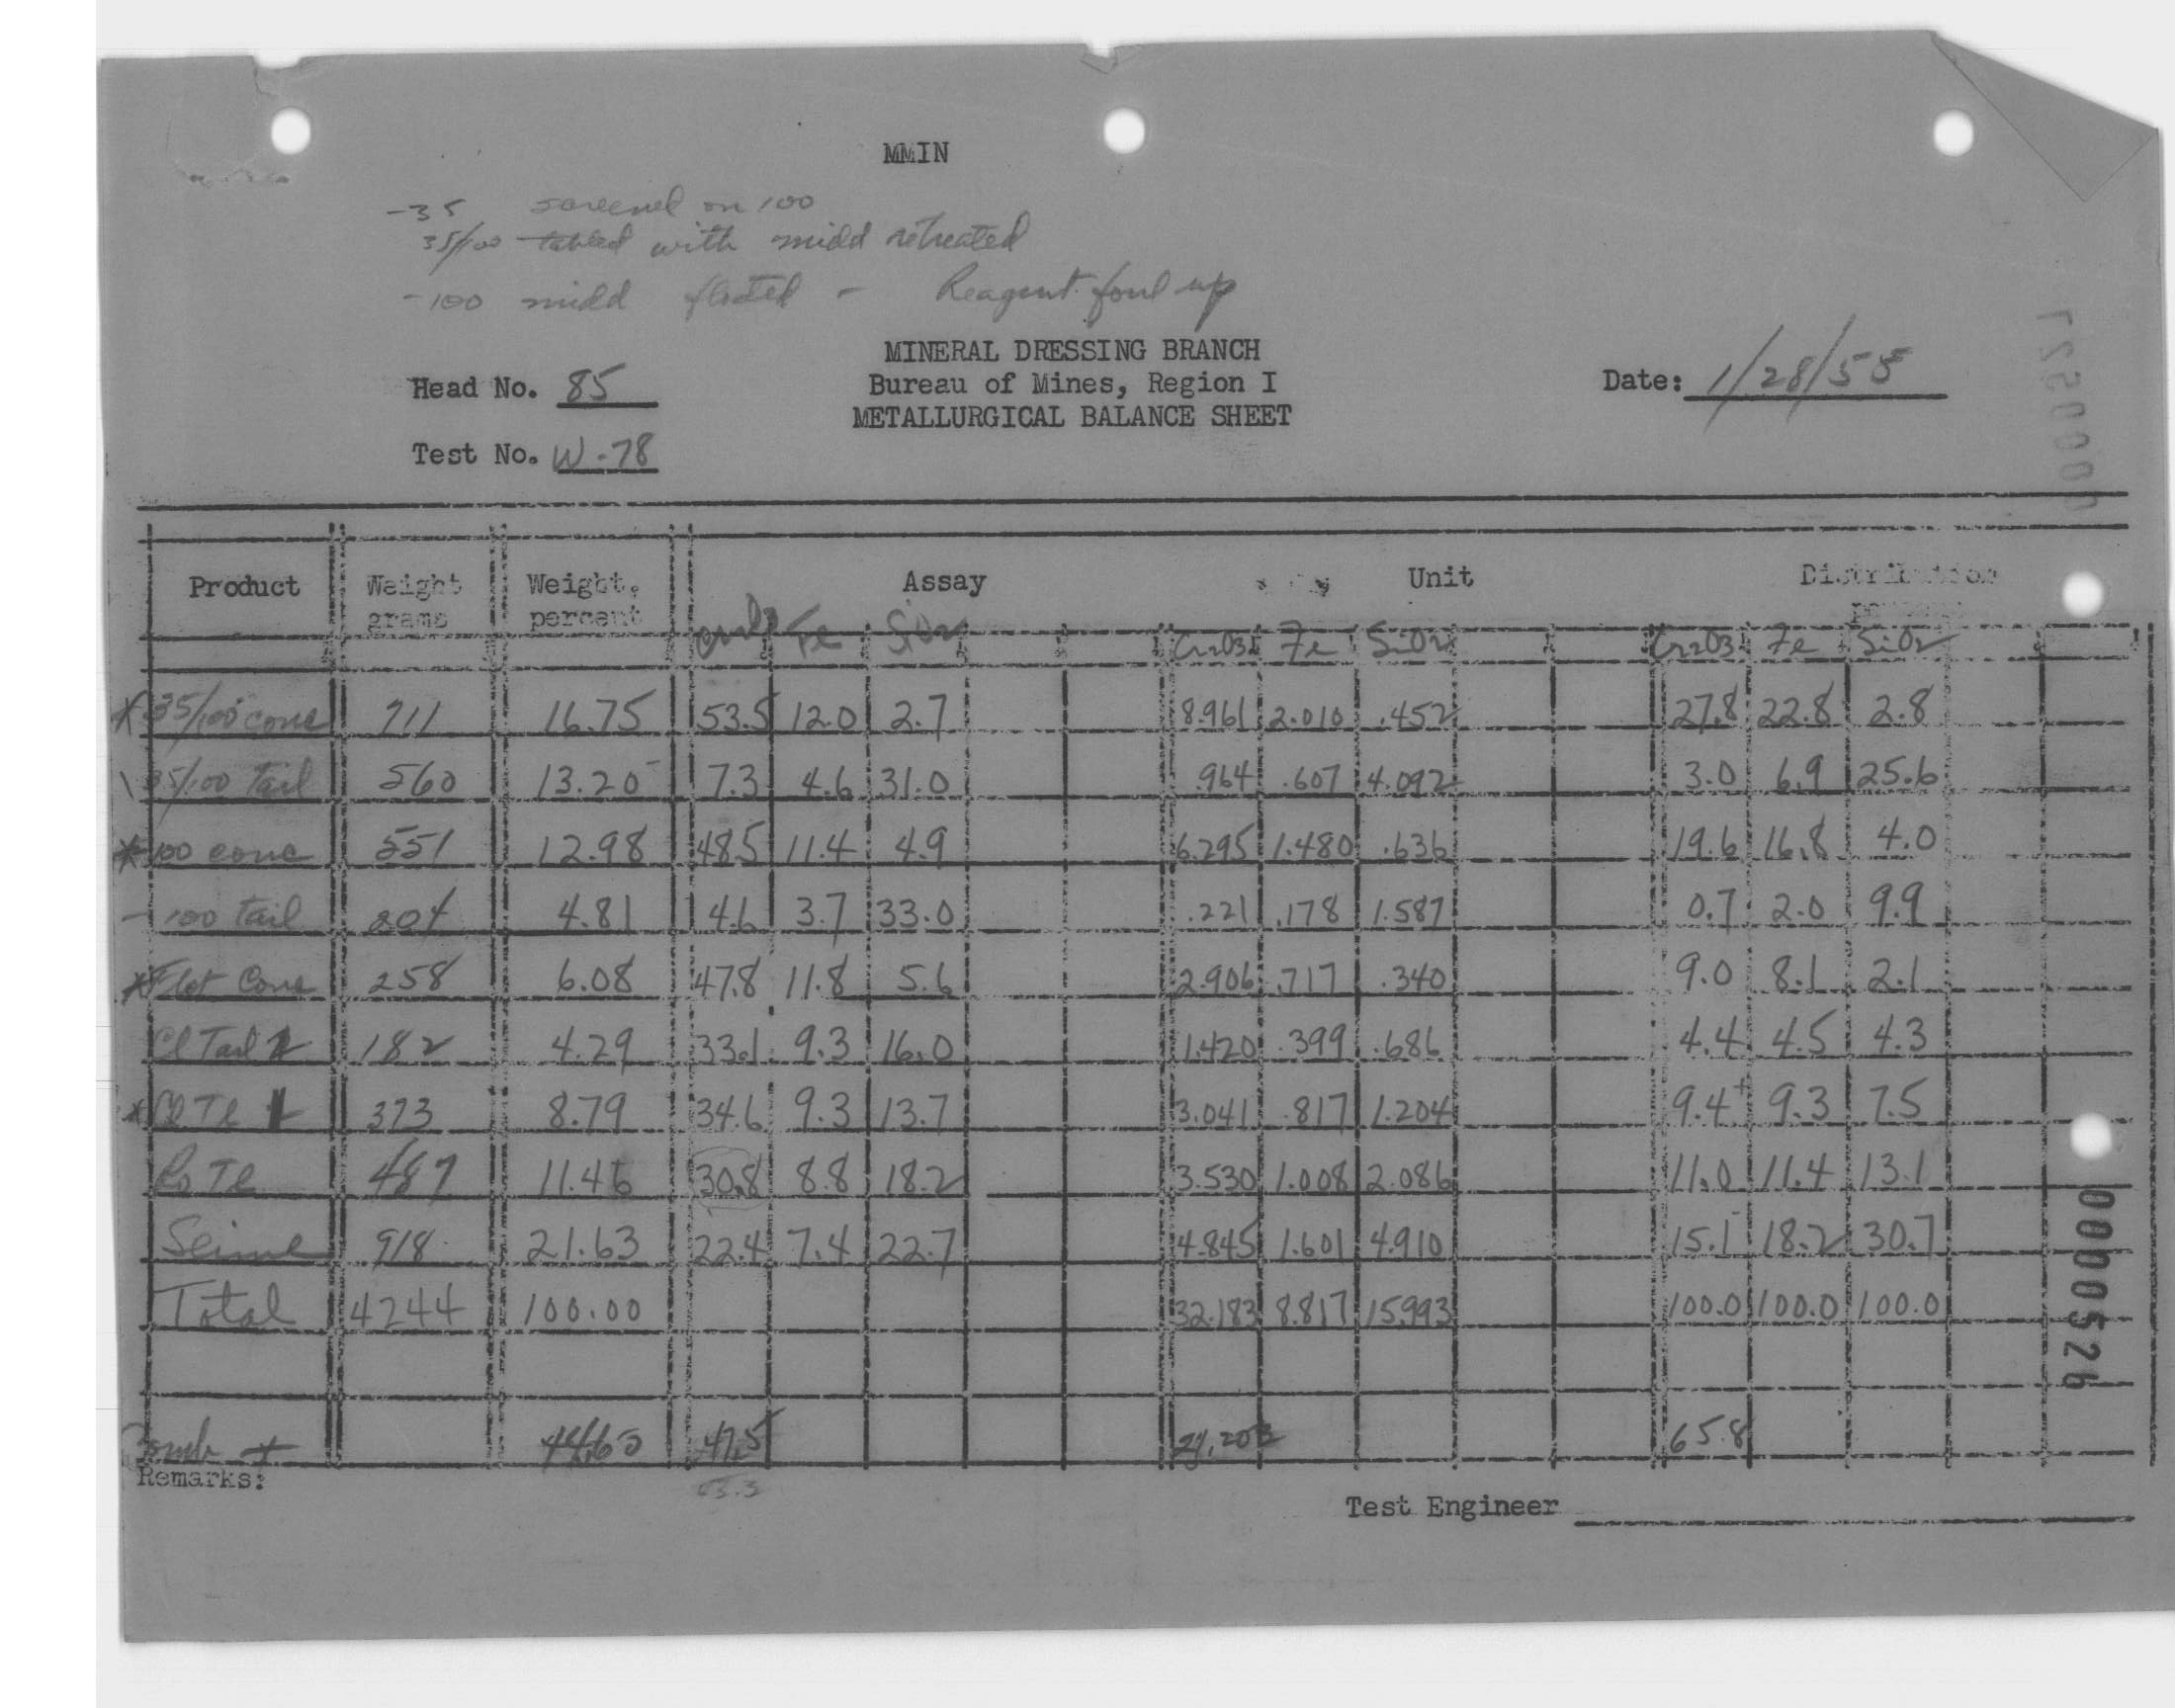 MMIN
-35 screened on 100
35/100 tabled with midd retreated
-100 midd floated - Reagent foul up
MINERAL DRESSING BRANCH
Head No. 85 Bureau of Mines, Region I Date: 1/28/55
METALLURGICAL BALANCE SHEET
Test No. W-78
000527
Product Weight grams Weight, percent Assay Unit Distribution
Fe SiO2 Cr2O3 Fe SiO2 Cr2O3 Fe SiO2
* 35/100 conc 711 16.75 53.5 12.0 2.7 8.961 2.010 .452 27.8 22.8 2.8
35/100 tail 560 13.20 7.3 4.6 31.0 .964 .607 4.092 3.0 6.9 25.6
* -100 conc 551 12.98 48.5 11.4 4.9 6.295 1.480 .636 19.6 16.8 4.0
-100 tail 204 4.81 4.6 3.7 33.0 .221 .178 1.587 0.7 2.0 9.9
* Flot Conc 258 6.08 47.8 11.8 5.6 2.906 .717 .340 9.0 8.1 2.1
Cl Tail 2 182 4.29 33.1 9.3 16.0 1.420 .399 .686 4.4 4.5 4.3
* Cl Tl 1 373 8.79 34.6 9.3 13.7 3.041 .817 1.204 9.4+ 9.3 7.5
Ro Tl 487 11.46 30.8 8.8 18.2 3.530 1.008 2.086 11.0 11.4 13.1
Slime 918 21.63 22.4 7.4 22.7 4.845 1.601 4.910 15.1- 18.2 30.7
Total 4244 100.00 32.183 8.817 15.993 100.0 100.0 100.0
Comb * 44.60 47.5 21.203 65.8
Remarks:
Test Engineer
0000526